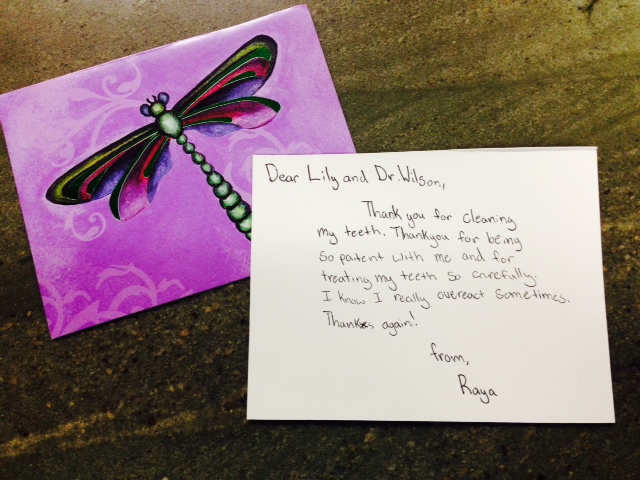 Dear Lily and Dr. Wilson,
Thank you for cleaning
my teeth. Thankyou for being
so patent with me and for
treating my teeth so carefully.
I know I really overeact sometimes.
Thanks again!
from,
Raya